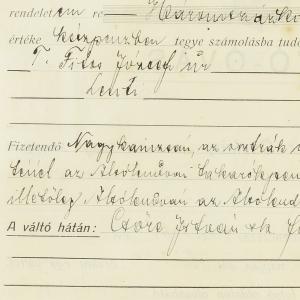 rendeletem re Háromszázke
értéke készpénzben tegye számolásba tudó
T. Fitos József úr
Lenti
Fizetendő Nagykanizsán, az osztrák
az Alsólendvai takarékpén
illetőleg Alsólendván az Alsólend
A váltó hátán: Czőre István